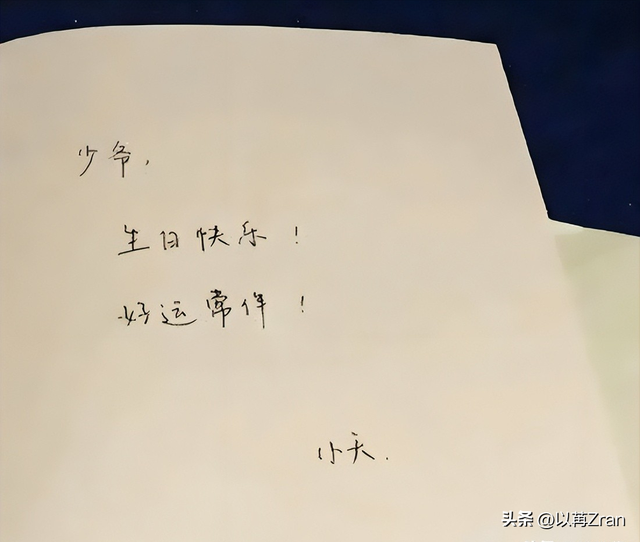 少爷，
生日快乐！
好运常伴！
小天.
头条 @以苒Zran